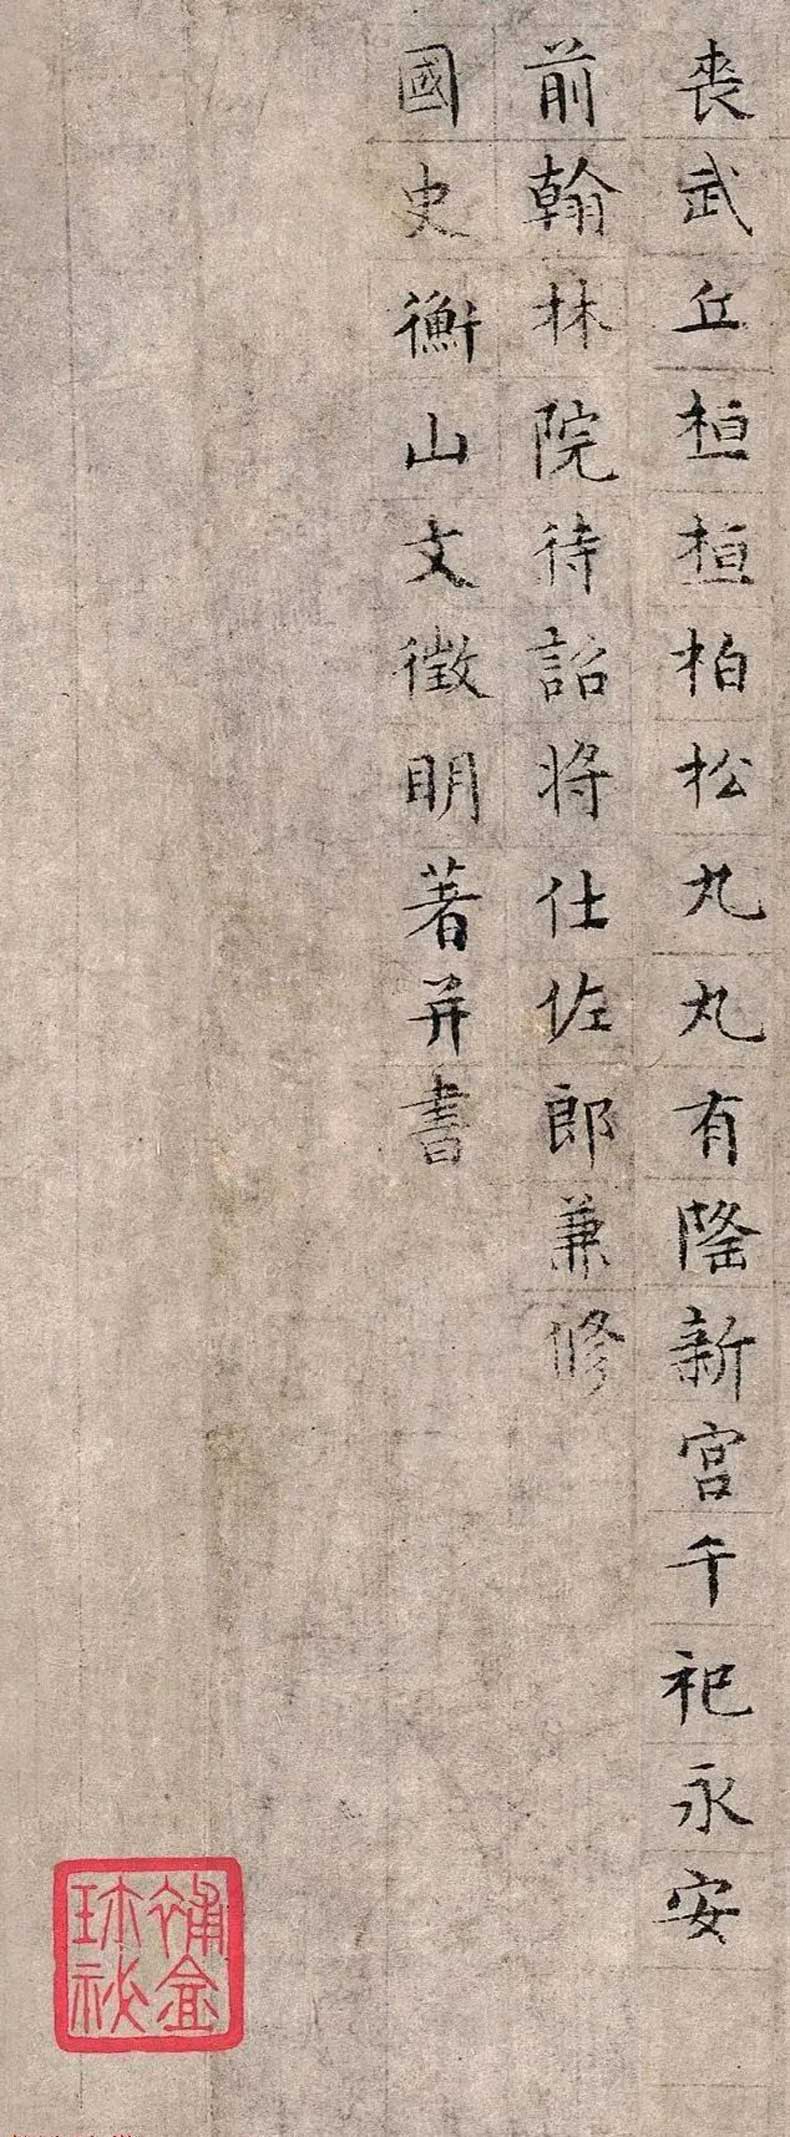 喪武丘桓桓柏松丸丸有隆新宮千祀永安
前翰林院待詔將仕佐郎兼修
國史衡山文徵明著并書